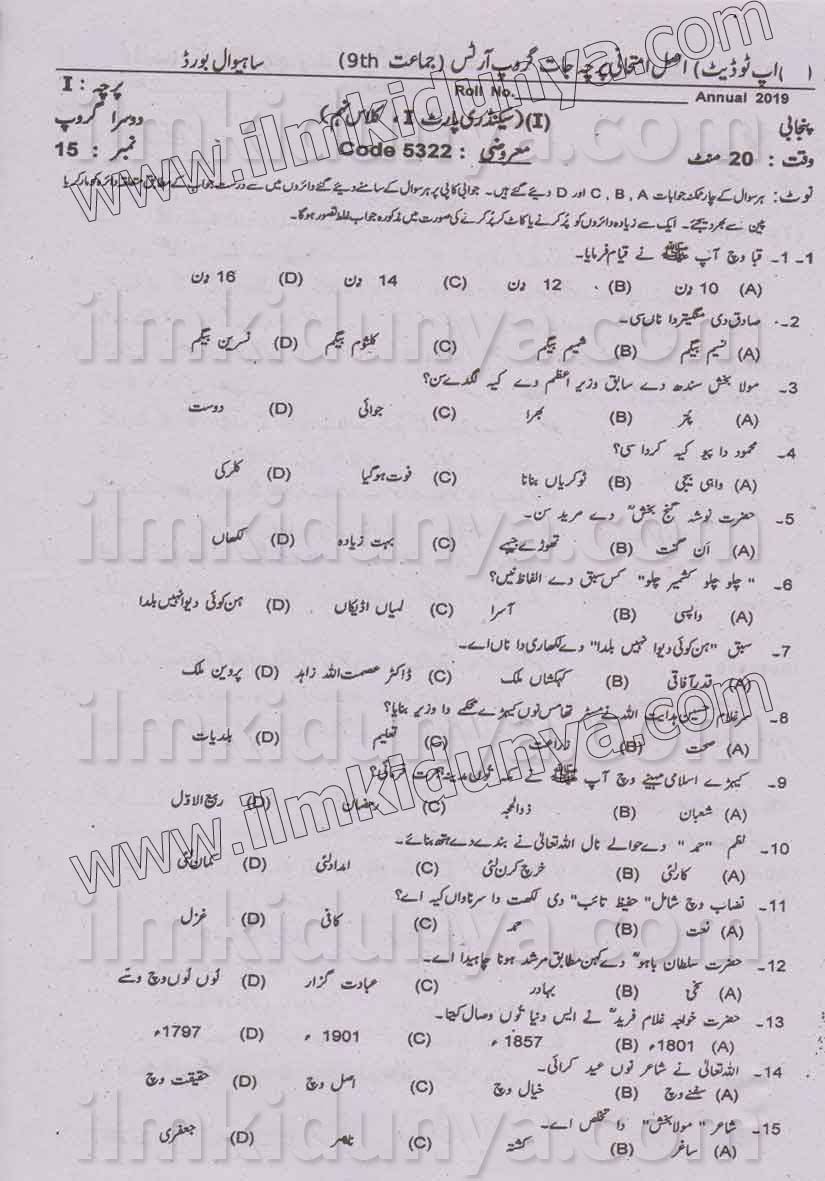 (اپ ٹو ڈیٹ) اصل امتحانی پرچہ جات گروپ آرٹس (جماعت 9th) ساہیوال بورڈ
Roll No.________ Annual 2019 پرچہ : I
پنجابی (I) (سیکنڈری پارٹ I ، کلاس نہم) دوسرا گروپ
وقت : 20 منٹ معروضی : Code 5322 نمبر : 15
نوٹ : ہر سوال کے چار ممکنہ جوابات C , B , A اور D دیئے گئے ہیں۔ جوابی کاپی پر ہر سوال کے سامنے دیئے گئے دائروں میں سے درست جواب کے مطابق متعلقہ دائرہ کو مارکر یا
پین سے بھر دیجئے۔ ایک سے زیادہ دائروں کو پُر کرنے یا کاٹ کر پُر کرنے کی صورت میں مذکورہ جواب غلط تصور ہوگا۔
1۔ 1۔ قبا وچ آپ ﷺ نے قیام فرمایا۔
(A) 10 دن (B) 12 دن (C) 14 دن (D) 16 دن
2۔ صادق دی منگیتر دا ناں سی۔
(A) نسیم بیگم (B) شمیم بیگم (C) کلثوم بیگم (D) نسرین بیگم
3۔ مولا بخش سندھ دے سابق وزیر اعظم دے کیہ لگدے سن؟
(A) پتر (B) بھرا (C) جوائی (D) دوست
4۔ محمود دا پیو کیہ کردا سی؟
(A) واہی بیجی (B) ٹوکریاں بنانا (C) فوت ہوگیا (D) کلرکی
5۔ حضرت نوشہ گنج بخشؒ دے مرید سن۔
(A) ان گنت (B) تھوڑے جیہے (C) بہت زیادہ (D) لکھاں
6۔ " چلو چلو کشمیر چلو" کس سبق دے الفاظ نیں؟
(A) واپسی (B) آسرا (C) لمیاں اڈیکاں (D) ہن کوئی دیوا نہیں بلدا
7۔ سبق "ہن کوئی دیوا نہیں بلدا" دے لکھاری دا ناں اے۔
(A) قدر آفاقی (B) کہکشاں ملک (C) ڈاکٹر عصمت اللہ زاہد (D) پروین ملک
8۔ سر غلام حسین ہدایت اللہ نے مسٹر تھامس نوں کیہڑے محکمے دا وزیر بنایا؟
(A) صحت (B) زراعت (C) تعلیم (D) بلدیات
9۔ کیہڑے اسلامی مہینے وچ آپ ﷺ نے مکہ توں مدینہ ہجرت فرمائی؟
(A) شعبان (B) ذوالحجہ (C) رمضان (D) ربیع الاوّل
10۔ نظم "حمد" دے حوالے نال اللہ تعالیٰ نے بندے دے ہتھ بنائے۔
(A) کار لئی (B) خرچ کرن لئی (C) امداد لئی (D) کمان لئی
11۔ نصاب وچ شامل "حفیظ تائب" دی لکھت دا سرناواں کیہ اے؟
(A) نعت (B) حمد (C) کافی (D) غزل
12۔ حضرت سلطان باہوؒ دے کہن مطابق مرشد ہونا چاہیدا اے۔
(A) سخی (B) بہادر (C) عبادت گزار (D) لوں لوں وچ وسّے
13۔ حضرت خواجہ غلام فریدؒ نے ایس دنیا توں وصال کیتا۔
(A) 1801ء (B) 1857ء (C) 1901ء (D) 1797ء
14۔ اللہ تعالیٰ نے شاعر نوں عید کرائی۔
(A) سفنے وچ (B) خیال وچ (C) اصل وچ (D) حقیقت وچ
15۔ شاعر "مولا بخش" دا تخلص اے۔
(A) ساغر (B) کشتہ (C) ناصر (D) جعفری
www.ilmkidunya.com
ilmkidunya.com
ilmkidunya.com
ilmkidunya.com
ilmkidunya.com
www.ilmkidunya.com
ilmkidunya.com
ilmkidunya.com